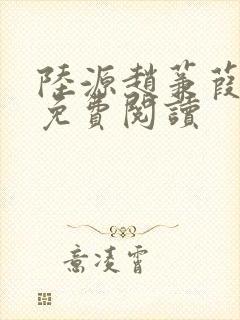 陸源趙蒹葭
免費閱讀
意凌霄